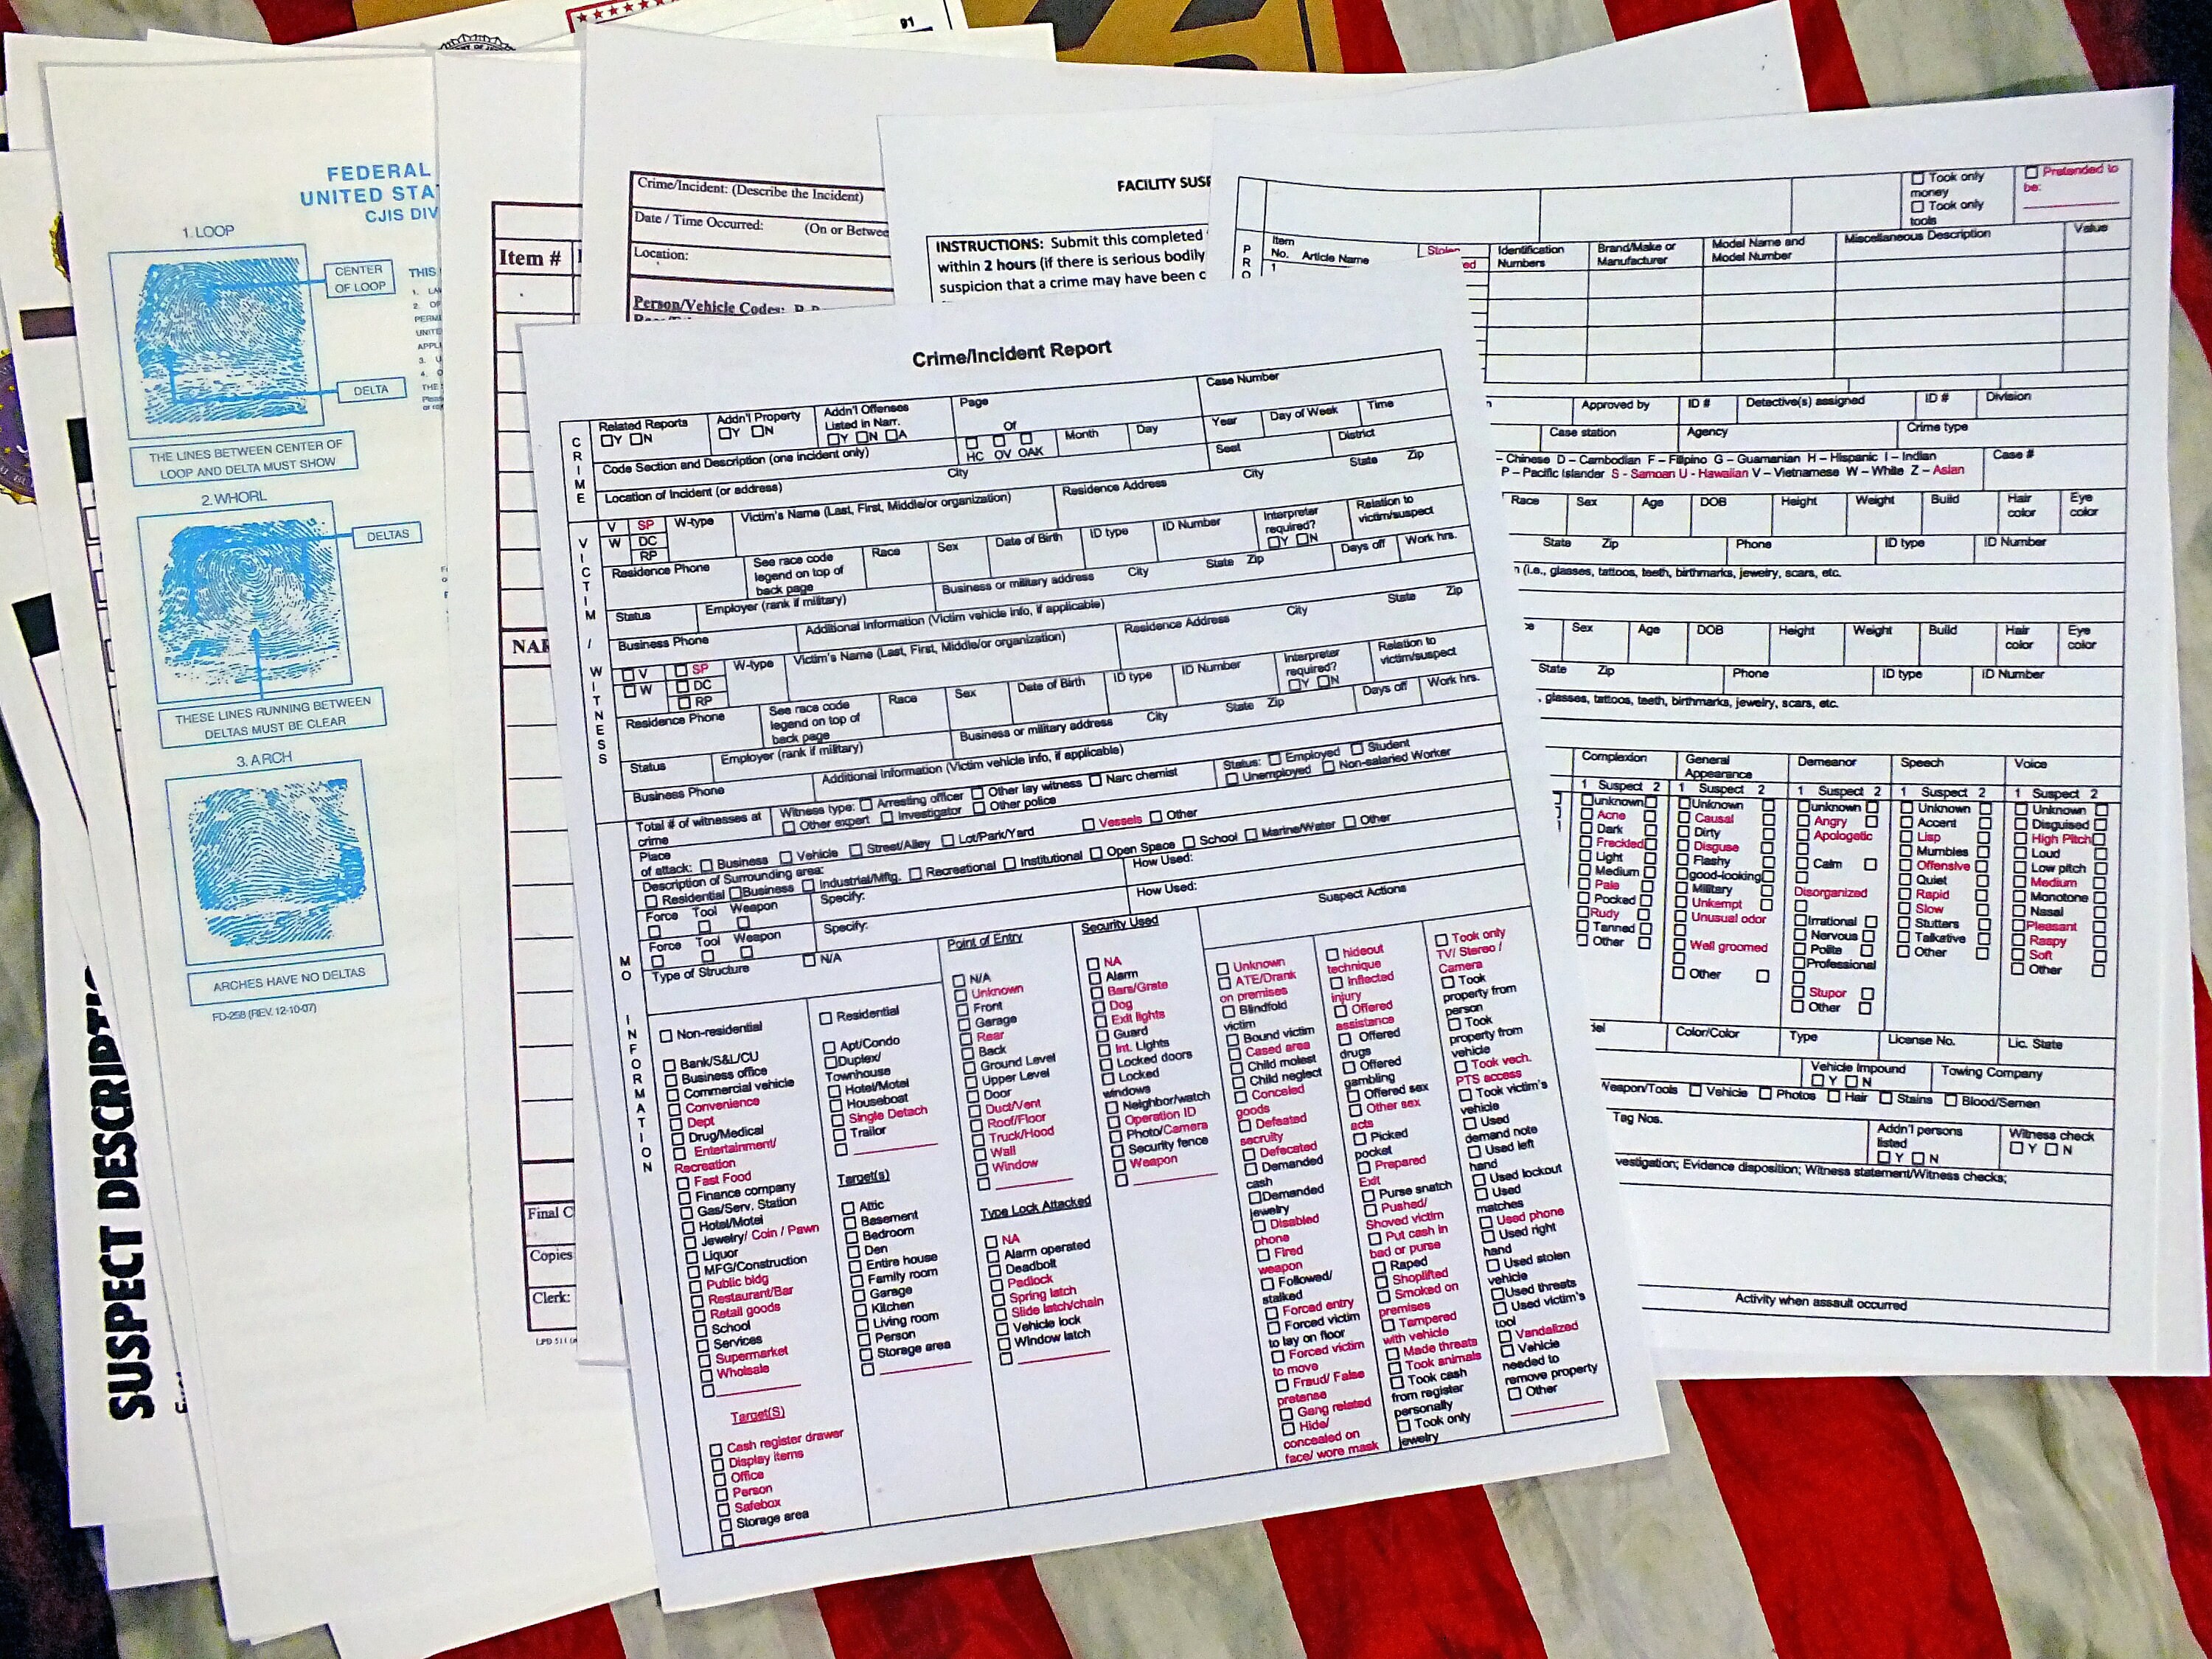 91
FEDERAL
UNITED STA
CJIS DIV
1. LOOP
CENTER
OF LOOP
DELTA
THE LINES BETWEEN CENTER OF
LOOP AND DELTA MUST SHOW
2. WHORL
DELTAS
THESE LINES RUNNING BETWEEN
DELTAS MUST BE CLEAR
3. ARCH
ARCHES HAVE NO DELTAS
FD-258 (REV. 12-10-07)
THIS
SUSPECT DESCRIPTIO
Item #
NAR
Final C
Copies
Clerk:
Crime/Incident: (Describe the Incident)
Date / Time Occurred: (On or Betwee
Location:
Person/Vehicle Codes:
FACILITY SUSP
INSTRUCTIONS: Submit this completed
within 2 hours (if there is serious bodily
suspicion that a crime may have been c
Took only
money
Took only
tools
Pretended to
be:
P
R
O
Item
No. Article Name
1
Stolen
ed
Identification
Numbers
Brand/Make or
Manufacturer
Model Name and
Model Number
Miscellaneous Description
Value
Approved by ID # Detective(s) assigned ID # Division
Case station Agency Crime type
- Chinese D – Cambodian F – Filipino G – Guamanian H – Hispanic I – Indian
P – Pacific Islander S - Samoan U - Hawaiian V – Vietnamese W – White Z – Asian
Case #
Race Sex Age DOB Height Weight Build Hair color Eye color
State Zip Phone ID type ID Number
n (i.e., glasses, tattoos, teeth, birthmarks, jewelry, scars, etc.
Sex Age DOB Height Weight Build Hair color Eye color
State Zip Phone ID type ID Number
, glasses, tattoos, teeth, birthmarks, jewelry, scars, etc.
Complexion
1 Suspect 2
unknown
Acne
Dark
Freckled
Light
Medium
Pale
Pocked
Rudy
Tanned
Other
General
Appearance
1 Suspect 2
Unknown
Causal
Dirty
Disguse
Flashy
good-looking
Military
Unkempt
Unusual odor
Well groomed
Other
Demeanor
1 Suspect 2
unknown
Angry
Apologetic
Calm
Disorganized
Irrational
Nervous
Polite
Professional
Stupor
Other
Speech
1 Suspect 2
Unknown
Accent
Lisp
Mumbles
Offensive
Quiet
Rapid
Slow
Stutters
Talkative
Other
Voice
1 Suspect 2
Unknown
Disguised
High Pitch
Loud
Low pitch
Medium
Monotone
Nasal
Pleasant
Raspy
Soft
Other
del Color/Color Type License No. Lic. State
Vehicle Impound
Y N
Towing Company
Weapon/Tools Vehicle Photos Hair Stains Blood/Semen
Tag Nos.
Addn'l persons
listed
Y N
Witness check
Y N
vestigation; Evidence disposition; Witness statement/Witness checks;
Activity when assault occurred
Crime/Incident Report
CRIME
Related Reports
Y N
Addn'l Property
Y N
Addn'l Offenses
Listed in Narr.
Y N A
Page
Of
HC OV OAK
Case Number
Month Day Year Day of Week Time
Code Section and Description (one incident only)
City
Seal
District
Location of Incident (or address)
Residence Address City State Zip
VICTIM / WITNESS
V SP
W DC
RP
W-type
Victim's Name (Last, First, Middle/or organization)
Residence Phone
See race code
legend on top of
back page
Race Sex Date of Birth ID type ID Number
Interpreter
required?
Y N
Relation to
victim/suspect
Status
Employer (rank if military)
Business or military address City State Zip
Days off Work hrs.
Business Phone
Additional Information (Victim vehicle info, if applicable)
Residence Address City State Zip
V SP
W DC
RP
W-type
Victim's Name (Last, First, Middle/or organization)
Residence Phone
See race code
legend on top of
back page
Race Sex Date of Birth ID type ID Number
Interpreter
required?
Y N
Relation to
victim/suspect
Status
Employer (rank if military)
Business or military address City State Zip
Days off Work hrs.
Business Phone
Additional Information (Victim vehicle info, if applicable)
MO INFORMATION
Total # of witnesses at
crime
Witness type: Arresting officer Other lay witness Narc chemist
Other expert Investigator Other police
Status: Employed Student
Unemployed Non-salaried Worker
Place
of attack: Business Vehicle Street/Alley Lot/Park/Yard Vessels Other
Description of Surrounding area:
Residential Business Industrial/Mftg. Recreational Institutional Open Space School Marine/Water Other
Force Tool Weapon Specify: How Used:
Force Tool Weapon Specify: How Used:
Type of Structure N/A
Non-residential
Bank/S&L/CU
Business office
Commercial vehicle
Convenience
Dept
Drug/Medical
Entertainment/
Recreation
Fast Food
Finance company
Gas/Serv. Station
Hotel/Motel
Jewelry/ Coin / Pawn
Liquor
MFG/Construction
Public bldg
Restaurant/Bar
Retail goods
School
Services
Supermarket
Wholsale
Target(S)
Cash register drawer
Display items
Office
Person
Safebox
Storage area
Residential
Apt/Condo
Duplex/
Townhouse
Hotel/Motel
Houseboat
Single Detach
Trailor
Target(s)
Attic
Basement
Bedroom
Den
Entire house
Family room
Garage
Kitchen
Living room
Person
Storage area
Point of Entry
N/A
Unknown
Front
Garage
Rear
Back
Ground Level
Upper Level
Door
Duct/Vent
Roof/Floor
Truck/Hood
Wall
Window
Type Lock Attacked
NA
Alarm operated
Deadbolt
Padlock
Spring latch
Slide latch/chain
Vehicle lock
Window latch
Security Used
NA
Alarm
Bars/Grate
Dog
Exit lights
Guard
Int. Lights
Locked doors
Locked
windows
Neighbor/watch
Operation ID
Photo/Camera
Security fence
Weapon
Suspect Actions
Unknown
ATE/Drank
on premises
Blindfold
victim
Bound victim
Cased area
Child molest
Child neglect
Conceled
goods
Defeated
secruity
Defecated
Demanded
cash
Demanded
jewelry
Disabled
phone
Fired
weapon
Followed/
stalked
Forced entry
Forced victim
to lay on floor
Forced victim
to move
Fraud/ False
pretense
Gang related
Hide/
concealed on
face/ wore mask
hideout
technique
Inflected
injury
Offered
assistance
Offered
drugs
Offered
gambling
Offered sex
Other sex
acts
Picked
pocket
Prepared
Exit
Purse snatch
Pushed/
Shoved victim
Put cash in
bad or purse
Raped
Shoplifted
Smoked on
premises
Tampered
with vehicle
Made threats
Took animals
Took cash
from register
personally
Took only
jewelry
Took only
TV/ Stereo /
Camera
Took
property from
person
Took
property from
vehicle
Took vech.
PTS access
Took victim's
vehicle
Used
demand note
Used left
hand
Used lockout
Used
matches
Used phone
Used right
hand
Used stolen
vehicle
Used threats
Used victim's
tool
Vandalized
Vehicle
needed to
remove property
Other